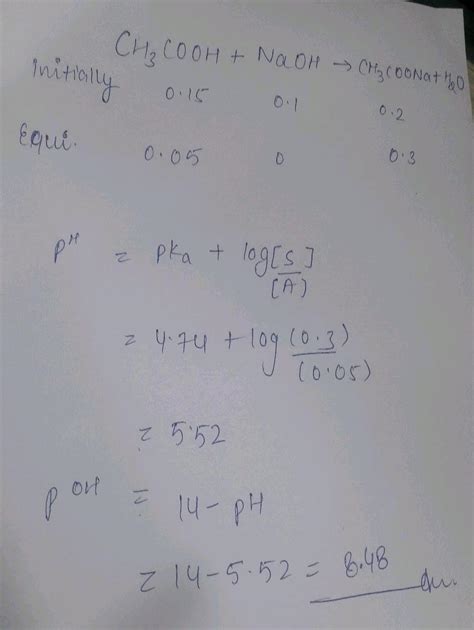 CH3COOH + NaOH → CH3COONa + H2O
Initially 0.15 0.1 0.2
Equi. 0.05 0 0.3
pH = pka + log [S]/[A]
= 4.74 + log (0.3)/(0.05)
= 5.52
pOH = 14 - pH
= 14 - 5.52 = 8.48